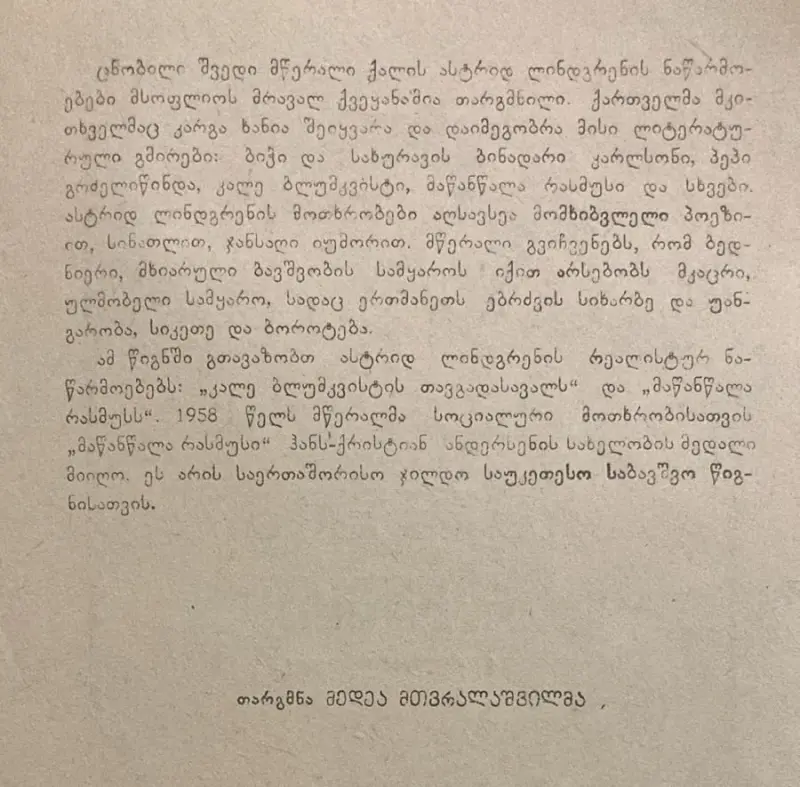 ცნობილი შვედი მწერალი ქალის ასტრიდ ლინდგრენის ნაწარმო-
ებები მსოფლიოს მრავალ ქვეყანაშია თარგმნილი. ქართველმა მკი-
თხველმაც კარგა ხანია შეიყვარა და დაიმეგობრა მისი ლიტერატუ-
რული გმირები: ბიჭი და სახურავის ბინადარი კარლსონი, პეპი
გრძელწინდა, კალე ბლუმკვისტი, მაწანწალა რასმუსი და სხვები.
ასტრიდ ლინდგრენის მოთხრობები აღსავსეა მომხიბვლელი პოეზი-
ით, სინათლით, ჯანსაღი იუმორით. მწერალი გვიჩვენებს, რომ ბედ-
ნიერი, მხიარული ბავშვობის სამყაროს იქით არსებობს მკაცრი,
ულმობელი სამყარო, სადაც ერთმანეთს ებრძვის სიხარბე და უან-
გარობა, სიკეთე და ბოროტება.
ამ წიგნში გთავაზობთ ასტრიდ ლინდგრენის რეალისტურ ნა-
წარმოებებს: „კალე ბლუმკვისტის თავგადასავალს“ და „მაწანწალა
რასმუსს“. 1958 წელს მწერალმა სოციალური მოთხრობისათვის
„მაწანწალა რასმუსი“ ჰანს-ქრისტიან ანდერსენის სახელობის მედალი
მიიღო. ეს არის საერთაშორისო ჯილდო საუკეთესო საბავშვო წიგ-
ნისათვის.
თარგმნა მედეა მთვრალაშვილმა